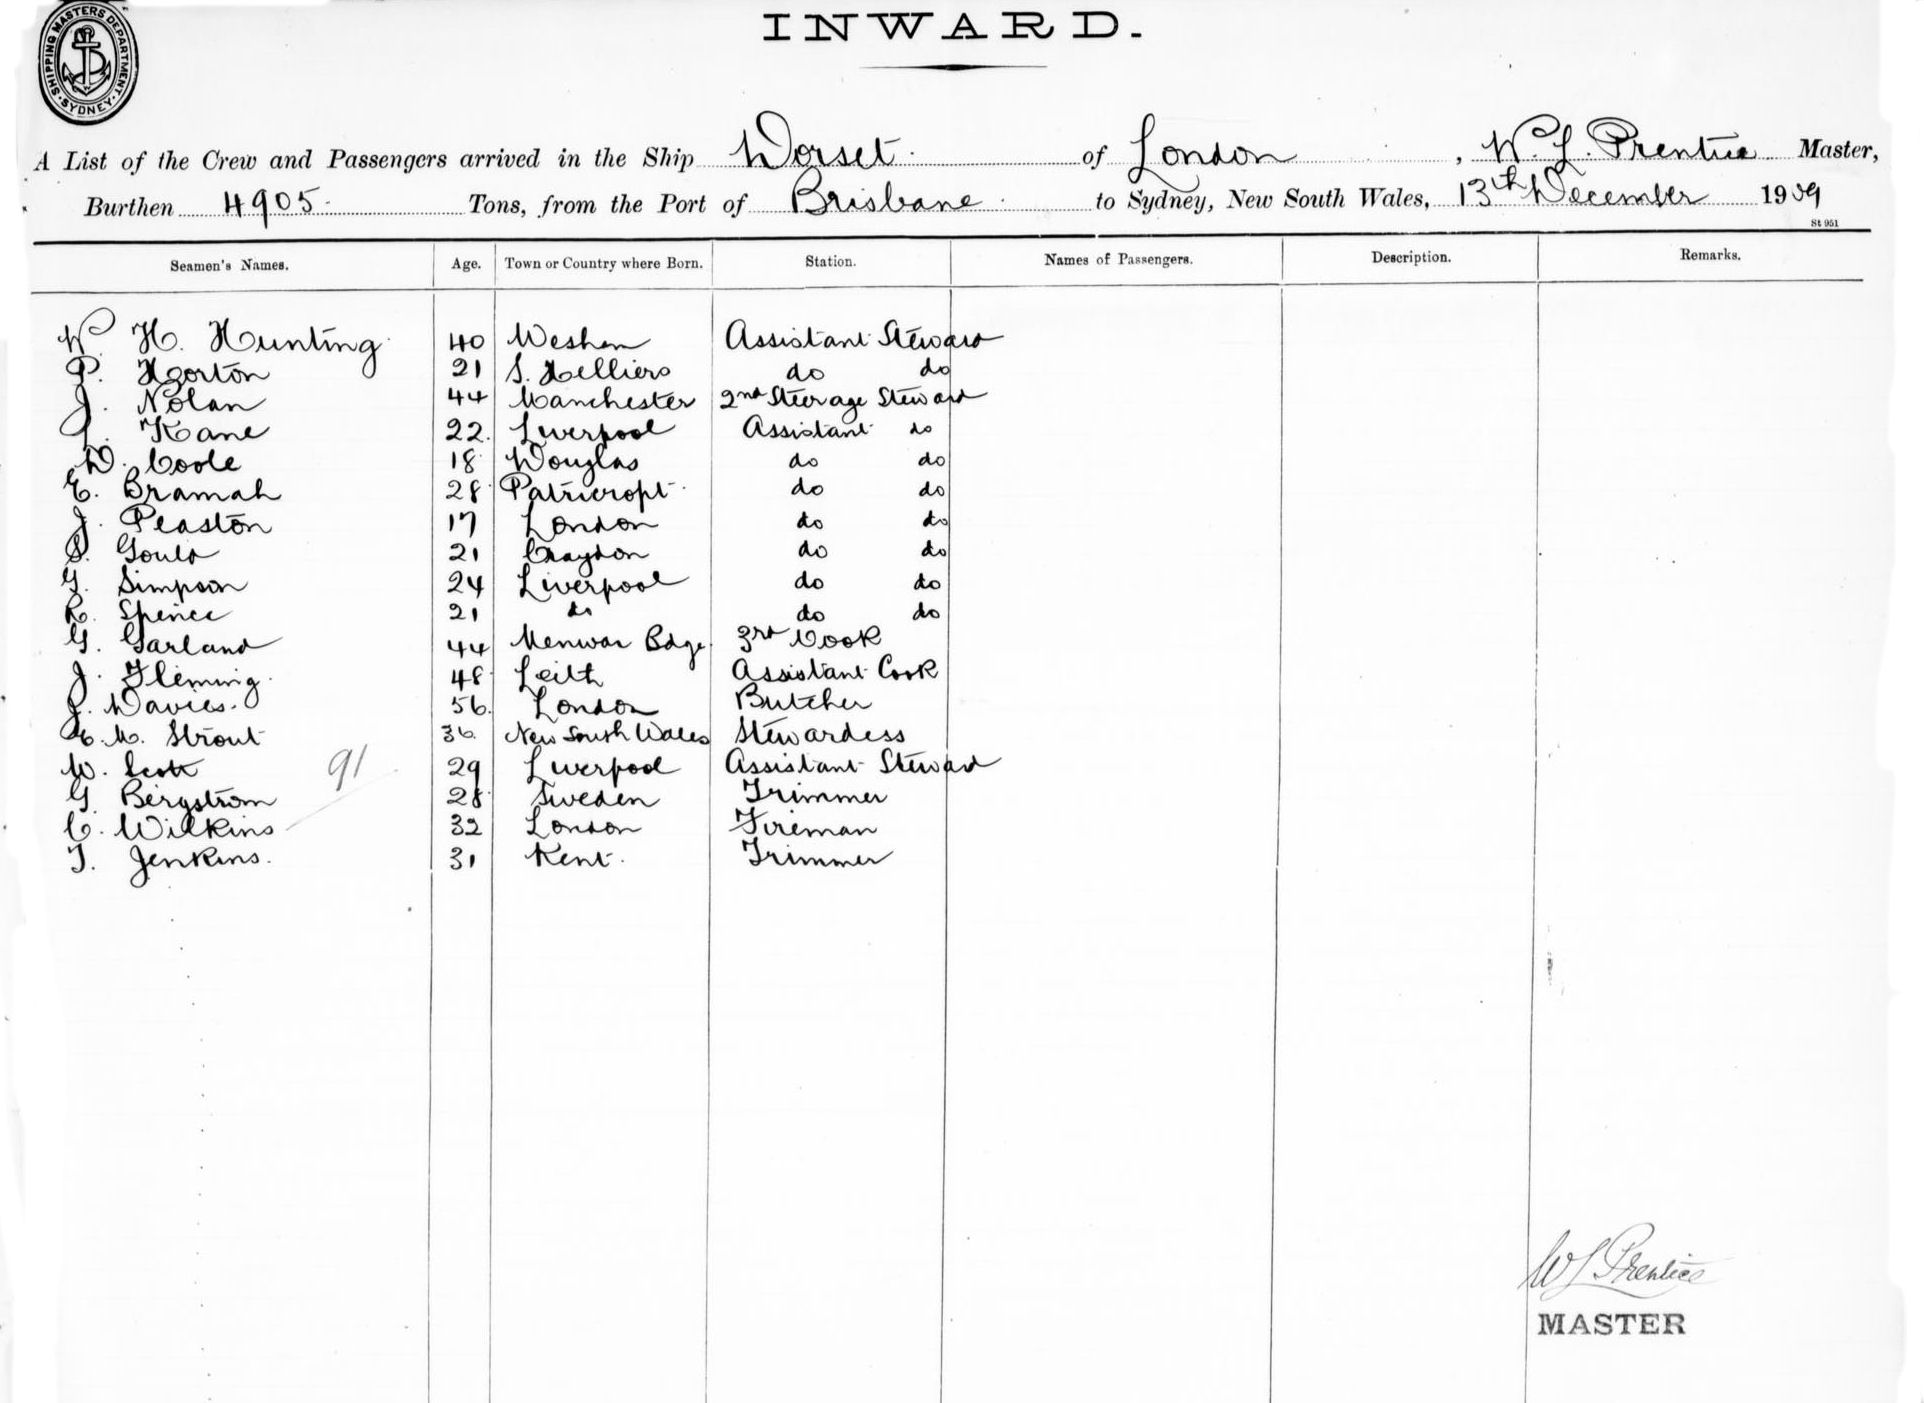 SHIPPING MASTERS DEPARTMENT SYDNEY
INWARD.
A List of the Crew and Passengers arrived in the Ship Dorset of London, W. L. Prentice Master,
Burthen 4905 Tons, from the Port of Brisbane to Sydney, New South Wales, 13th December 1909
St 951
Seamen's Names. Age. Town or Country where Born. Station. Names of Passengers. Description. Remarks.
W. H. Hunting 40 Assistant Steward
P. Horton 21 S. Helliers do do
J. Nolan 44 Manchester 2nd Steerage Steward
L. Kane 22 Liverpool Assistant do
D. Coole 18 Douglas do do
E. Bramah 28 Patricropt do do
J. Peaston 17 London do do
S. Gould 21 Croydon do do
G. Simpson 24 Liverpool do do
R. Spence 21 do do do
G. Garland 44 3rd Cook
J. Fleming 48 Leith Assistant Cook
J. Davies 56 London Butcher
E. M. Strout 36 New South Wales Stewardess
W. Scott 91 29 Liverpool Assistant Steward
G. Bergstrom 28 Sweden Trimmer
C. Wilkins 32 London Fireman
T. Jenkins 31 Kent Trimmer
W L Prentice
MASTER